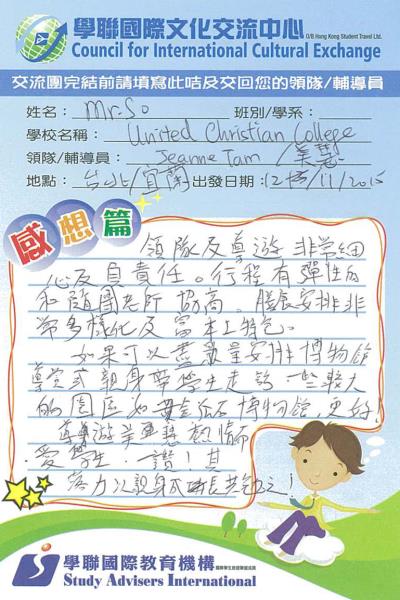 學聯國際文化交流中心 O/B Hong Kong Student Travel Ltd.
Council for International Cultural Exchange
交流團完結前請填寫此咭及交回您的領隊/輔導員
姓名： Mr. So 班別/學系：
學校名稱： United Christian College
領隊/輔導員： Jeanne Tam / 美慧
地點： 台北/宜蘭 出發日期：12-15/11/2015
感想篇
領隊及導遊非常細
心及負責任。行程有彈性的
和隨團老師協商。膳食安排非
常多樣化及富本土特色。
如果可以盡量安排博物館
導賞或親身帶學生走訪一些較大
的園區如黃金博物館，更好！
導遊美慧熱情
愛學生，讚！其
努力以
學聯國際教育機構
Study Advisers International